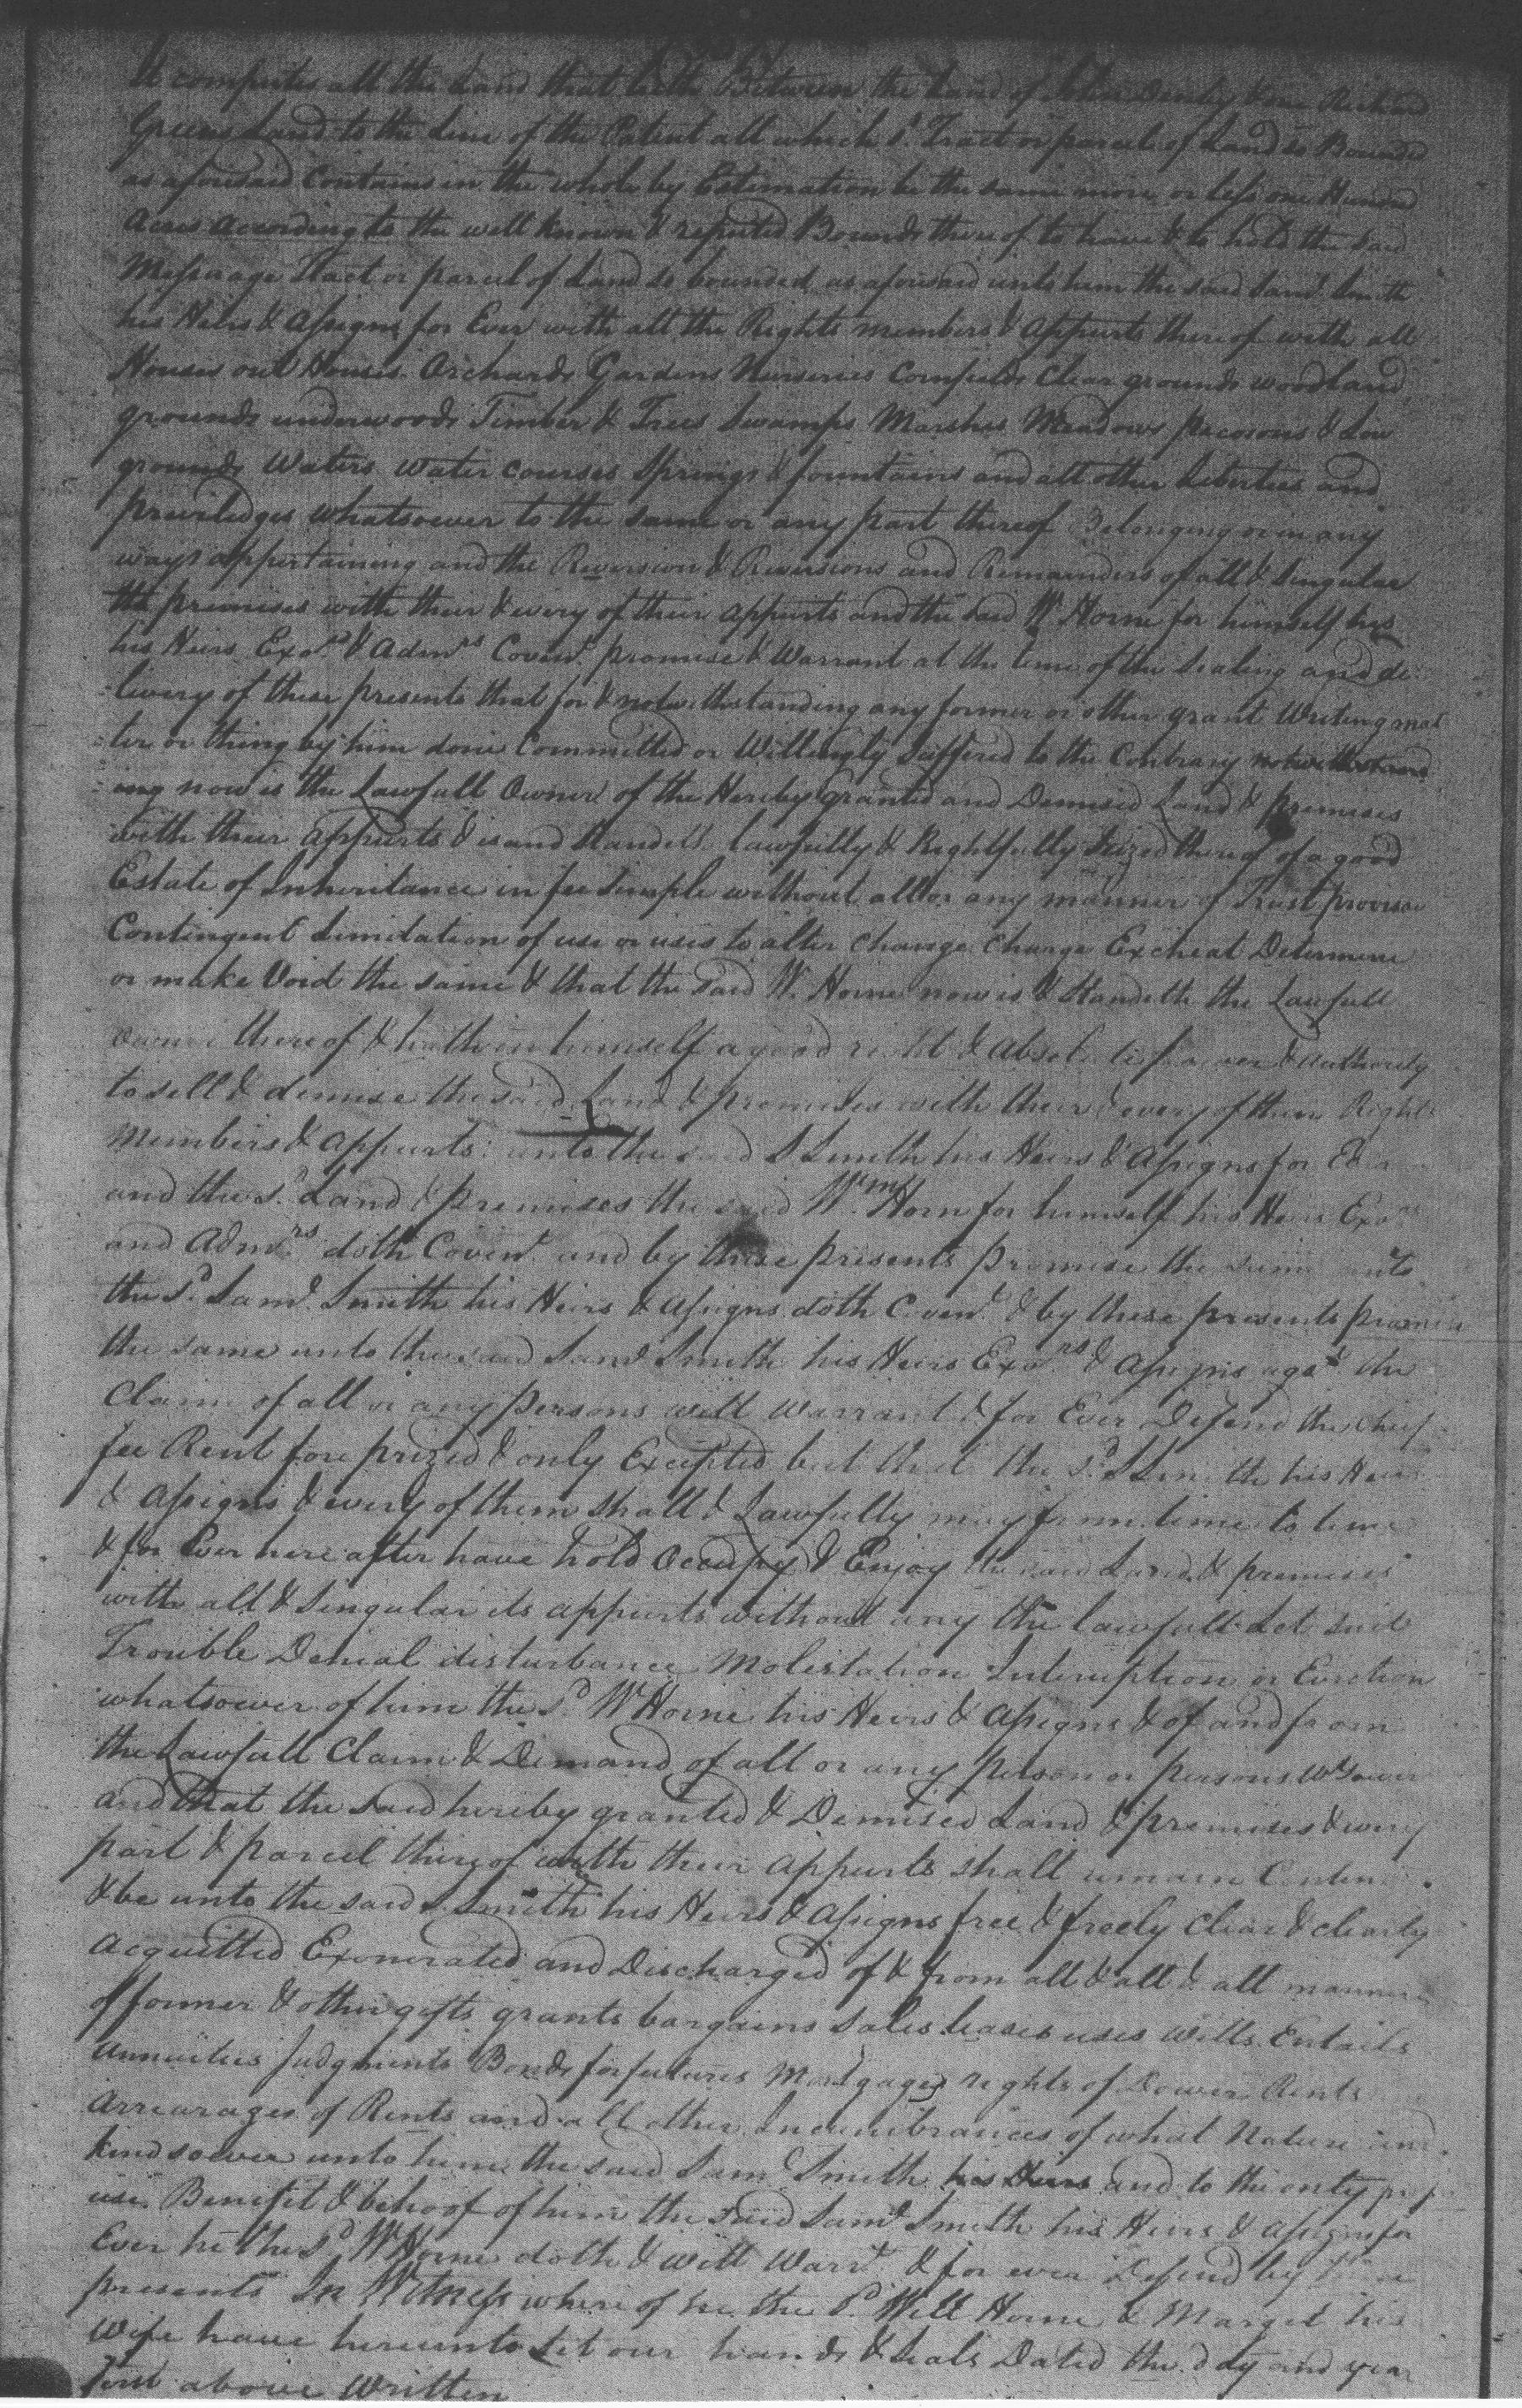 it comprites all the Land that lieth Between the Land of John Denby & one Richard
Greens Land to the Line of the Patent all which sd. Tract or parcel of Land so Bounded
as aforesaid Contains in the whole by Estimation be the same more or less one Hundred
Acres according to the well known & reputed Bounds there of to have & to hold the said
Messuage Tract or parcel of Land so bounded as aforesaid unto him the said Saml. Smith
his Heirs & Assigns for Ever with all the Rights members & Appurts there of with all
Houses out Houses Orchards Gardens Nurseries Cornfields Clear grounds woodland
grounds underwoods Timber & Trees Swamps Marshes Meadows pacosons & Low
grounds Waters Water courses Springs & fountains and all other Liberties and
priviledges whatsoever to the same or any part thereof Belonging or in any
ways appertaining and the Reversion & Reversions and Remainders of all & Singular
the premises with their & every of their appurts and the said W. Horne for himself his
his Heirs Exors. & Admrs Covent. promise & Warrant at the time of the Sealing and de
=livery of these presents that for & notwithstanding any former or other grant Writing mat
=ter or thing by him done Committed or Willingly Suffered to the Contrary notwithstand
=ing now is the Lawfull Owner of the Hereby granted and Demised Land & premises
with their appurts & is and Standeth lawfully & Rightfully Seized there of of a good
Estate of Inheritance in fee Simple without all or any manner of Trust proviso
Contingent Limitation of use or uses to alter change Charge Excheat Determine
or make Void the same & that the said W. Horne now is & Standeth the Lawfull
owner there of & hath in himself a good right & absolute power & authority
to sell & demise the said Land & premises with their & every of their Rights
Members & appurts: unto the said S Smith his Heirs & Assigns for Ever
and the sd. Land & premises the said Wm. Horn for himself his Heirs Exors
and Admrs. doth Covent. and by these presents promise the same unto
the sd. Saml. Smith his Heirs & Assigns doth Covent. & by these presents promise
the same unto the said Saml. Smith his Heirs Exors. & Assigns agst. the
Claim of all or any persons will warrant & for Ever Defend the chief
fee Rent fore prized & only Excepted but that the sd. S Smith his Heirs
& Assigns & every of them Shall & Lawfully may from time to time
& for Ever here after have hold Occupy & Enjoy the said Land & premises
with all & Singular its appurts without any the lawfull Let Suit
Trouble Denial disturbance Molestation Interuption or Eviction
whatsoever of him the sd. W Horne his Heirs & Assigns & of and from
the Lawfull Claim & Demand of all or any person or persons Wsoever
and that the said hereby granted & Demised Land & premises & every
part & parcel thereof with their appurts shall remain Contin
& be unto the said S. Smith his Heirs & Assigns free & freely Clear & clearly
acquitted Exonerated and Discharged of & from all & all & all manner
of former & other gifts grants bargains Sales leases uses Wills Entails
annuities Judgments Bonds forfutures Mortgages rights of Dower Rents
arrearages of Rents and all other Incumbrances of what Nature and
kind soever unto him the said Saml. Smith his Heirs and to the only prop
use Benefit & behoof of him the said Saml. Smith his Heirs & Assigns for
Ever he the sd. W Horne doth & will Warrt. & for ever Defend by these
presents In Witness where of he the sd. Will Horne & Marget his
Wife have hereunto Set our hands & Seals Dated the day and year
first above Written